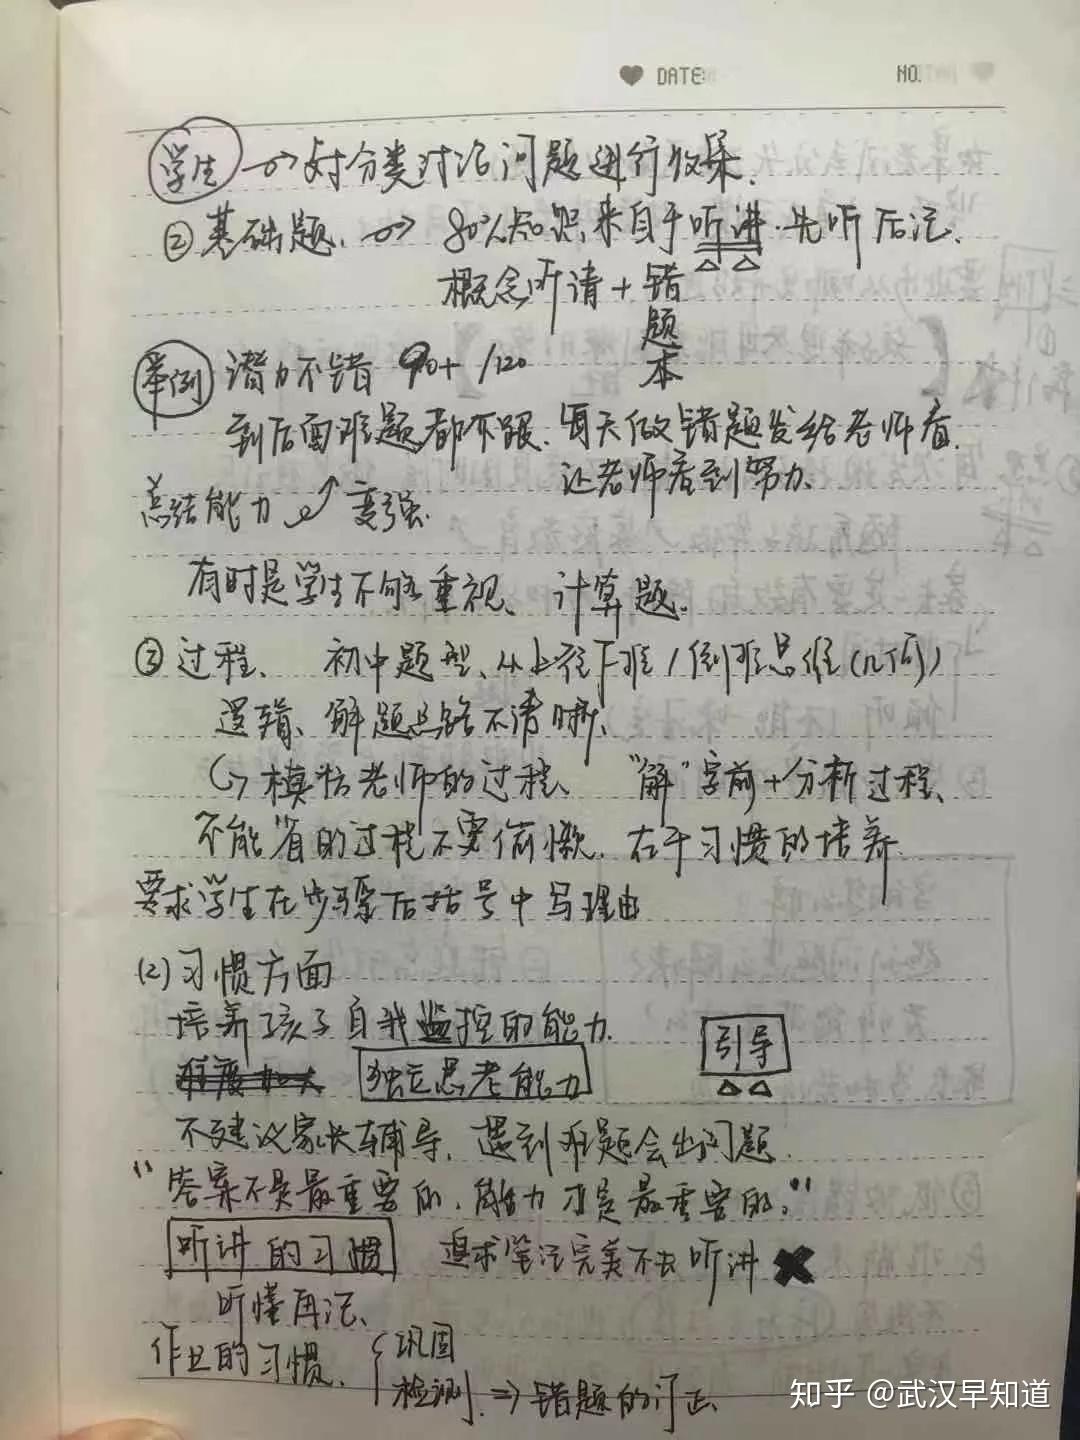 DATE: NO.
学生 → 对分类讨论问题进行收集.
② 基础题、→ 80%知识来自于听讲.先听后记.
概念听清+错题本
举例 潜力不错 90+ /120
到后面难题都不跟、每天做错题发给老师看.
让老师看到努力.
总结能力 ↗ 变强.
有时是学生不够重视、计算题.
③ 过程、 初中题型、从上往下推/倒推思维(几何)
逻辑、解题思路不清晰、
↪ 模仿老师的过程、 "解"字前+分析过程、
不能省的过程不要偷懒. 在于习惯的培养.
要求学生在步骤后括号中写理由
(2) 习惯方面
培养孩子自我监控的能力.
独立思考能力 引导
不建议家长辅导, 遇到难题会出问题.
"答案不是最重要的, 能力才是最重要的."
听讲的习惯 追求笔记完美不去听讲 ✖
听懂再记、
作业的习惯、{ 巩固
检测. ⇒ 错题的订正.
知乎 @武汉早知道